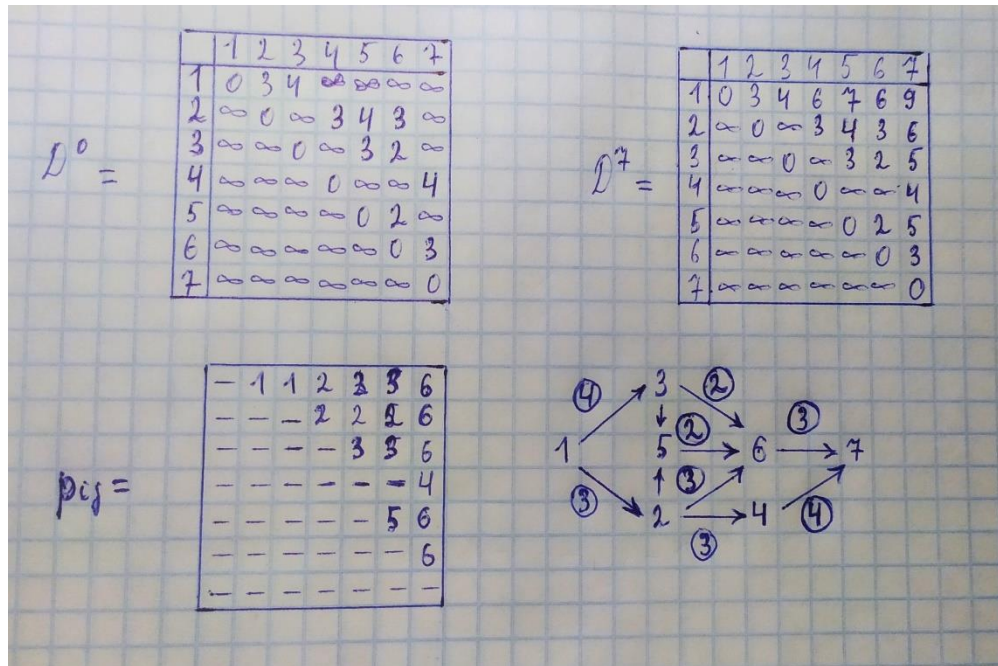 1 2 3 4 5 6 7
1 0 3 4 ∞ ∞ ∞ ∞
2 ∞ 0 ∞ 3 4 3 ∞
3 ∞ ∞ 0 ∞ 3 2 ∞
4 ∞ ∞ ∞ 0 ∞ ∞ 4
5 ∞ ∞ ∞ ∞ 0 2 ∞
6 ∞ ∞ ∞ ∞ ∞ 0 3
7 ∞ ∞ ∞ ∞ ∞ ∞ 0
D⁰ =
1 2 3 4 5 6 7
1 0 3 4 6 7 6 9
2 ∞ 0 ∞ 3 4 3 6
3 ∞ ∞ 0 ∞ 3 2 5
4 ∞ ∞ ∞ 0 ∞ ∞ 4
5 ∞ ∞ ∞ ∞ 0 2 5
6 ∞ ∞ ∞ ∞ ∞ 0 3
7 ∞ ∞ ∞ ∞ ∞ ∞ 0
D⁷ =
— 1 1 2 6
— — — 2 2 2 6
— — — — 3 3 6
— — — — — — 4
— — — — — 5 6
— — — — — — 6
— — — — — — —
pij =
3 ②
④ ↓ ③
1 5 ② → 6 → 7
③ ↑ ③
2 → 4 ④
③